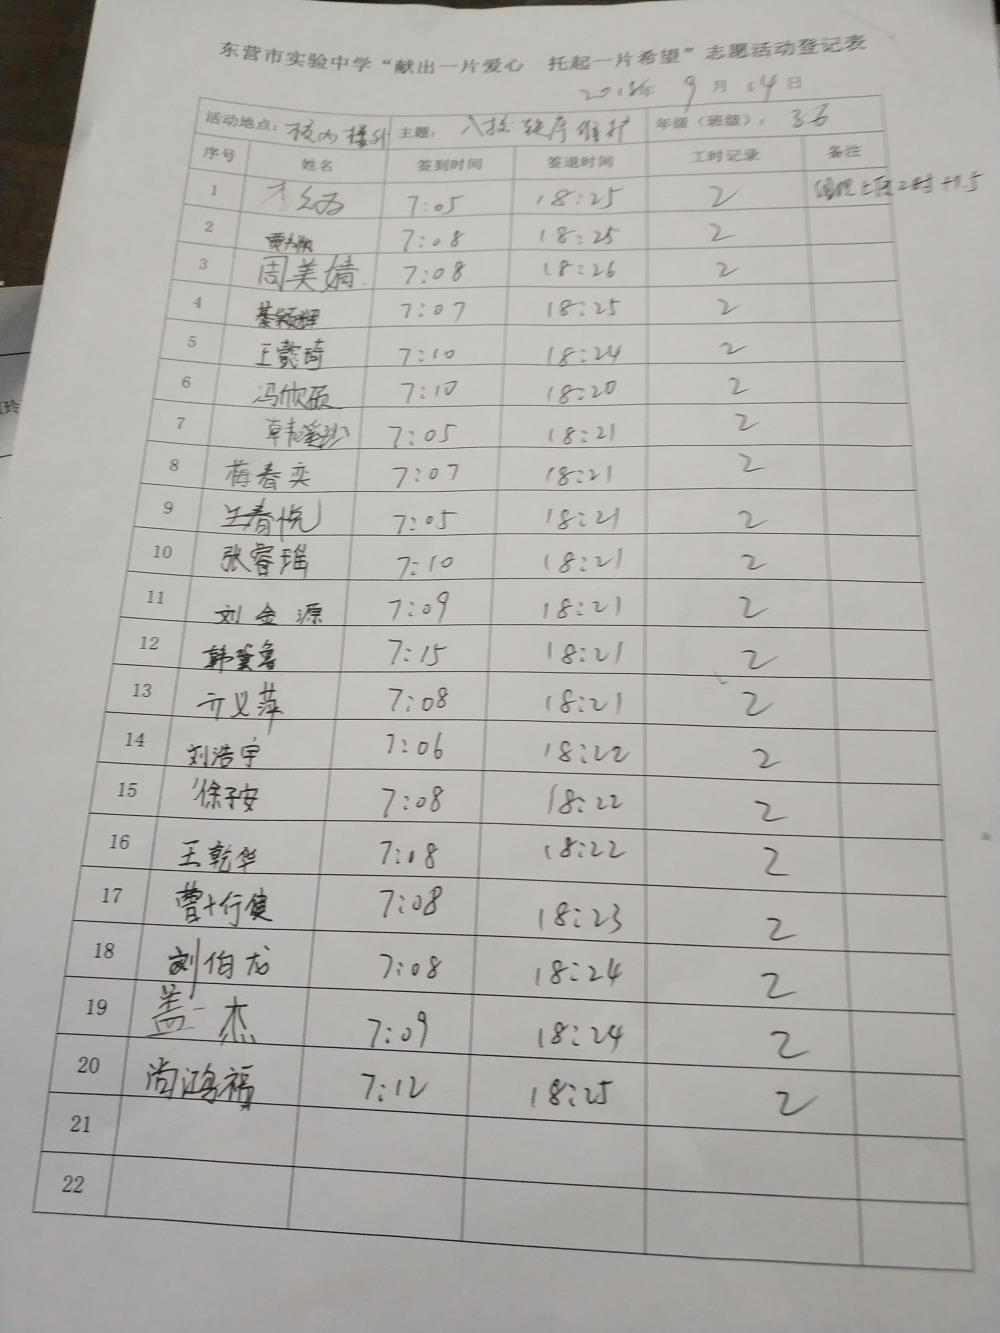 东营市实验中学“献出一片爱心 托起一片希望”志愿活动登记表
2018年 9月 14日
活动地点：校内楼外 主题：入校秩序维护 年级（班级）：36
序号 姓名 签到时间 签退时间 工时记录 备注
1 7:05 18:25 2
2 7:08 18:25 2
3 周美婧 7:08 18:26 2
4 綦颖辉 7:07 18:25 2
5 王懿琦 7:10 18:24 2
6 冯欣硕 7:10 18:20 2
7 韩 7:05 18:21 2
8 梅春奕 7:07 18:21 2
9 王春悦 7:05 18:21 2
10 张睿瑶 7:10 18:21 2
11 刘金源 7:09 18:21 2
12 韩冀鲁 7:15 18:21 2
13 亓义萍 7:08 18:21 2
14 刘浩宇 7:06 18:22 2
15 徐子安 7:08 18:22 2
16 王乾华 7:18 18:22 2
17 曹行健 7:08 18:23 2
18 刘伯龙 7:08 18:24 2
19 盖一杰 7:09 18:24 2
20 尚鸿福 7:12 18:25 2
21
22